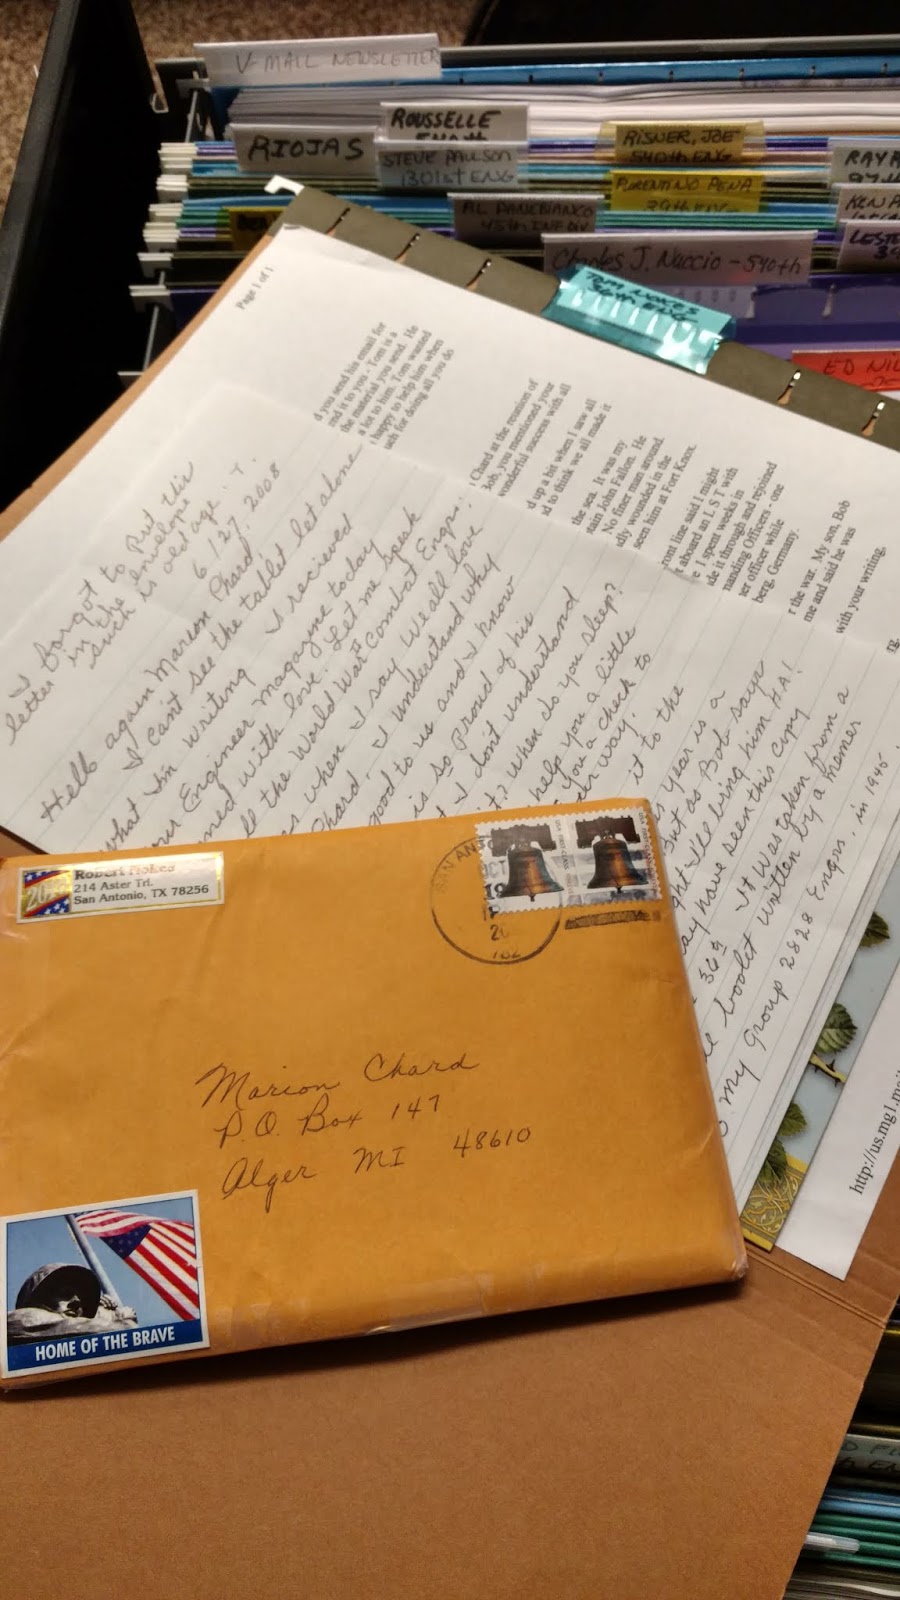 V-MAIL NEWSLETTER
ROUSSELLE
RIOJAS
STEVE PAULSON
1301ST ENG
RISNER, JOE
540TH ENG
FLORENTINO PENA
39TH ENG
AL PANEBIANCO
45TH INF DIV
Charles J. Nuccio - 540th
TOM NOKES
36th ENG
Page 1 of 1
you send his email for
end it to you - Tom is a
the material you send. He
a lot to him. Tom wanted
happy to help him when
uch for doing all you do
Chard at the reunion of
Bob, you mentioned your
wonderful success with all
d up a bit when I saw all
d to think we all made it
the sea. It was my
tain John Fallon. He
No finer man around.
dly wounded in the
seen him at Fort Knox.
front line said I might
t aboard an L S T with
e I spent weeks in
de it through and rejoined
manding Officers - one
er officer while
berg, Germany.
r the war. My son, Bob
me and said he was
with your writing.
I forgot to Put this
letter in the envelope
such is old age. T.
6/27, 2008
Hello again Marion Chard:
I can't see the tablet let alone
what I'm writing. I recieved
ur Engineer Magazine today
ned with love. Let me speak
ll the World War II Combat Engrs.
as when I say We all love
Chard. I understand why
good to us and I know
is so Proud of his
t I don't understand
it? When do you sleep?
help you a little
you a check to
it to the
is year is a
But as Bob says
ght I'll bring him HA!
ay have seen this Copy
36th It Was taken from a
booklet written by a memer
my Group 2828 Engrs. in 1945
http://us.mg1.ma
214 Aster Trl.
San Antonio, TX 78256
SAN ANTO
OCT
Marion Chard
P.O. Box 147
Alger MI 48610
HOME OF THE BRAVE